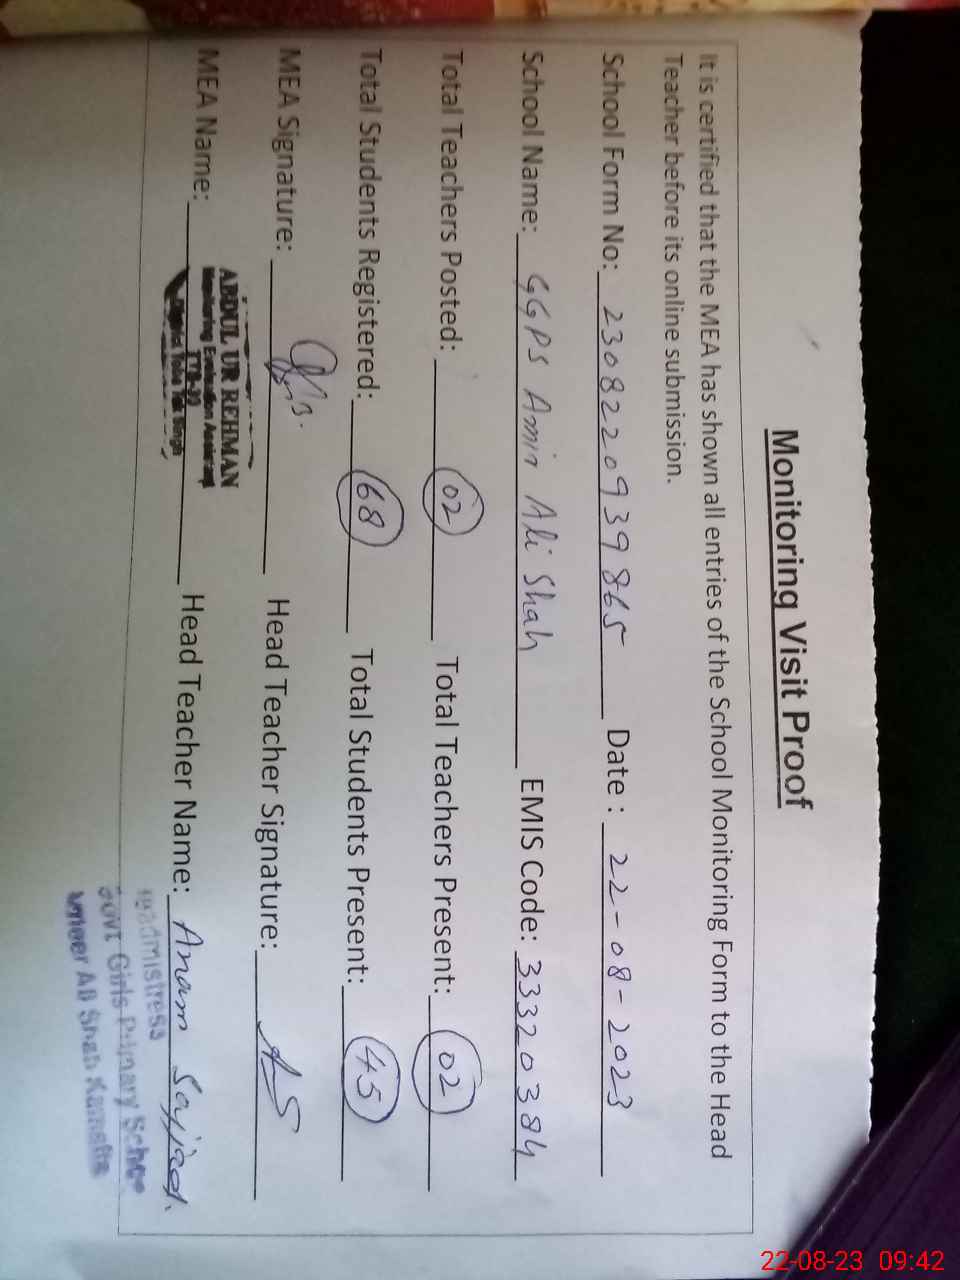 Monitoring Visit Proof
It is certified that the MEA has shown all entries of the School Monitoring Form to the Head
Teacher before its online submission.
School Form No: 2308220939865 Date : 22-08-2023
School Name: GGPS Amir Ali Shah EMIS Code: 33320384
Total Teachers Posted: 02 Total Teachers Present: 02
Total Students Registered: 68 Total Students Present: 45
MEA Signature: Head Teacher Signature: AS
MEA Name: Head Teacher Name: Anam Sajjad.
ABDUL UR REHMAN
Monitoring Evaluation Assistant
District Toba Tek Singh
Headmistress
Govt Girls Primary Schoo
Ameer Ali Shah
22-08-23 09:42